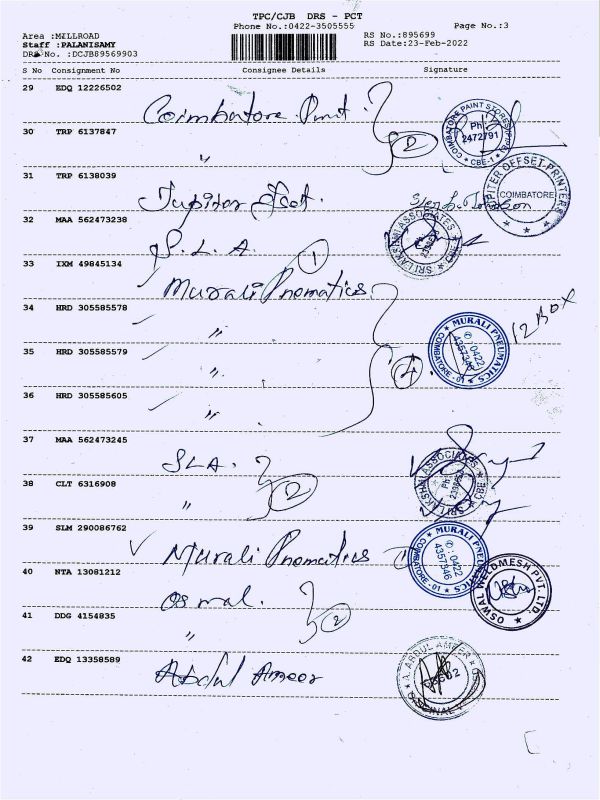 TPC/CJB DRS - PCT
Phone No.:0422-3505555
Page No.:3
Area :MILLROAD
RS No.:895699
Staff :PALANISAMY
RS Date:23-Feb-2022
DRS No. :DCJB89569903
S No Consignment No Consignee Details Signature
29 EDQ 12226502
Coimbatore Paint
COIMBATORE PAINT STORES
Ph:
2472791
CBE-1
30 TRP 6137847
"
2
31 TRP 6138039
Jupiter
JUPITER OFFSET PRINTERS
COIMBATORE
32 MAA 562473238
S.L.A.
1
SRI LAKSHMI ASSOCIATES
33 IXM 49845134
Murali Pnomatics
34 HRD 305585578
"
12 BOX
MURALI PNEUMATICS
0422
4357346
COIMBATORE - 01
35 HRD 305585579
"
4
36 HRD 305585605
"
37 MAA 562473245
SLA.
38 CLT 6316908
"
2
39 SLM 290086762
Murali Pnomatics
1
MURALI PNEUMATICS
0422
4357346
COIMBATORE - 01
40 NTA 13081212
Oswal.
OSWAL WELDMESH PVT. LTD.
41 DDG 4154835
"
2
42 EDQ 13358589
Abdul Ameer
A. ABDUL AMEER